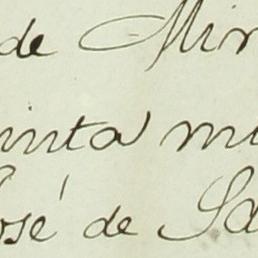 de Min
inta mi
José de Sa